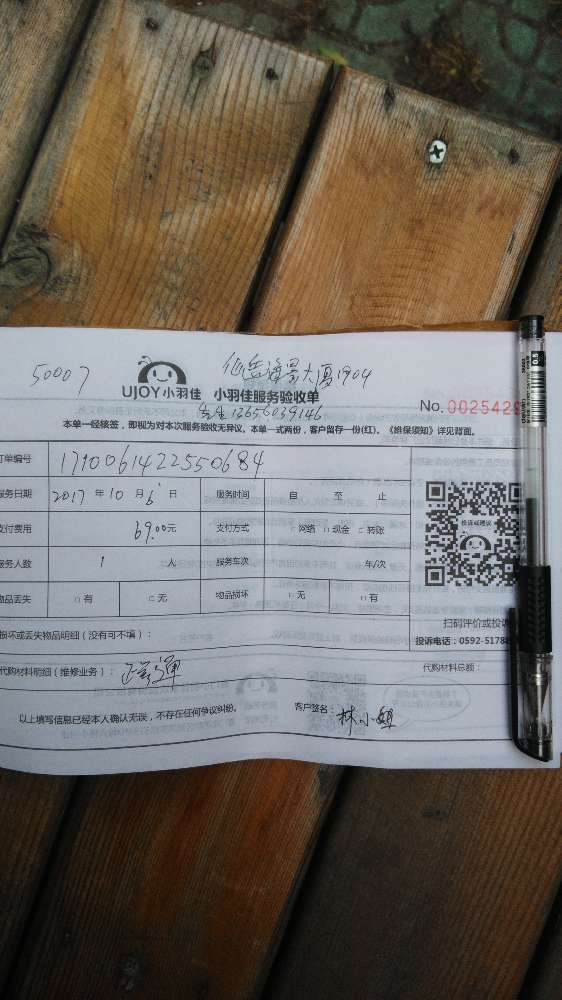 50007
仙岳海景大厦1904
UJOY小羽佳 小羽佳服务验收单
12656039146
No. 0025429
本单一经核签，即视为对本次服务验收无异议。本单一式两份，客户留存一份(红)。《维保须知》详见背面。
订单编号 1710061422550684
服务日期 2017 年 10 月 6 日 服务时间 自 至 止
支付费用 69.00元 支付方式 网络 □ 现金 □ 转账
投诉或建议
服务人数 1 人 服务车次 车/次
物品丢失 □ 有 □ 无 物品损坏 □ 无 □ 有
扫码评价或投诉
损坏或丢失物品明细（没有可不填）：
投诉电话：0592-5178
代购材料明细（维修业务）： 通
代购材料总额：
以上填写信息已经本人确认无误，不存在任何争议纠纷。 客户签名： 林小姐
0.5